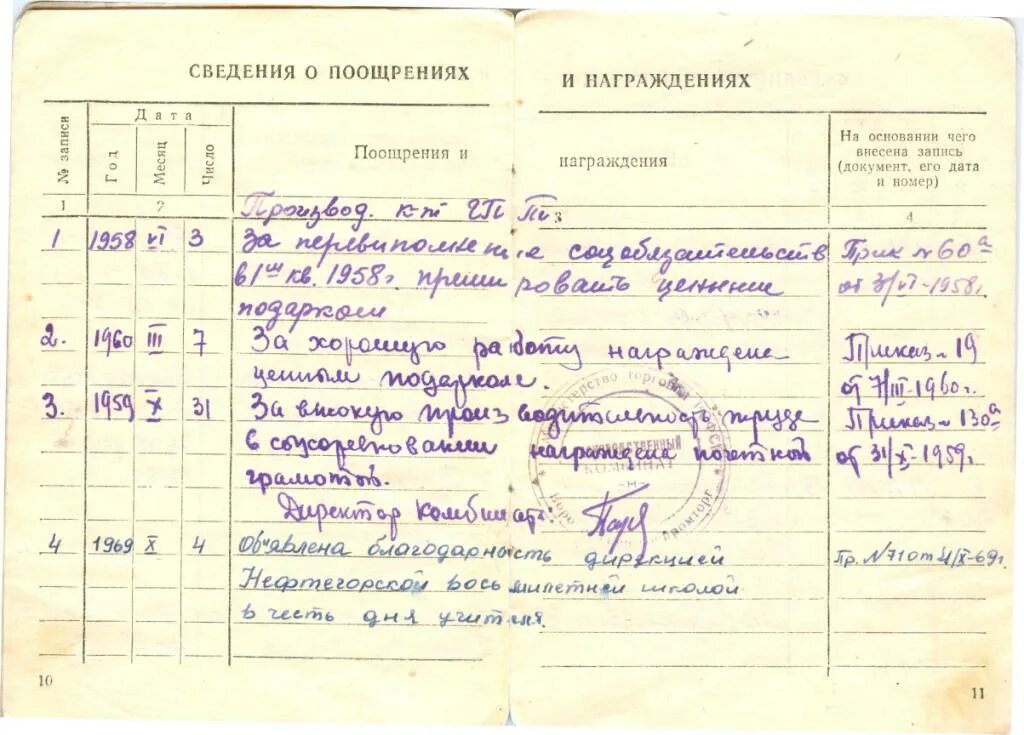 СВЕДЕНИЯ О ПООЩРЕНИЯХ И НАГРАЖДЕНИЯХ
№ записи
Дата
Год
Месяц
Число
Поощрения и награждения
На основании чего
внесена запись
(документ, его дата
и номер)
1 2 3 4
Производ. к-т
1 1958 VI 3 За перевиполнение соцобязательств Прик №60а
в 1ш кв. 1958г. премировать ценным от 3/VI-1958г.
подарком
2. 1960 III 7 За хорошую работу награждена Приказ 19
ценным подарком. от 7/III-1960г.
3. 1959 X 31 За высокую производительность труда Приказ 130а
в соцсоревновании награждена почетной от 31/X-1959г.
грамотой.
Директор комбината:
4 1969 X 4 Объявлена благодарность дирекцией Пр. №71 от 4/X-69г.
Нефтегорской восьмилетней школой
в честь дня учителя.
министерство торговли РСФСР
промторг
КОМБИНАТ
10
11